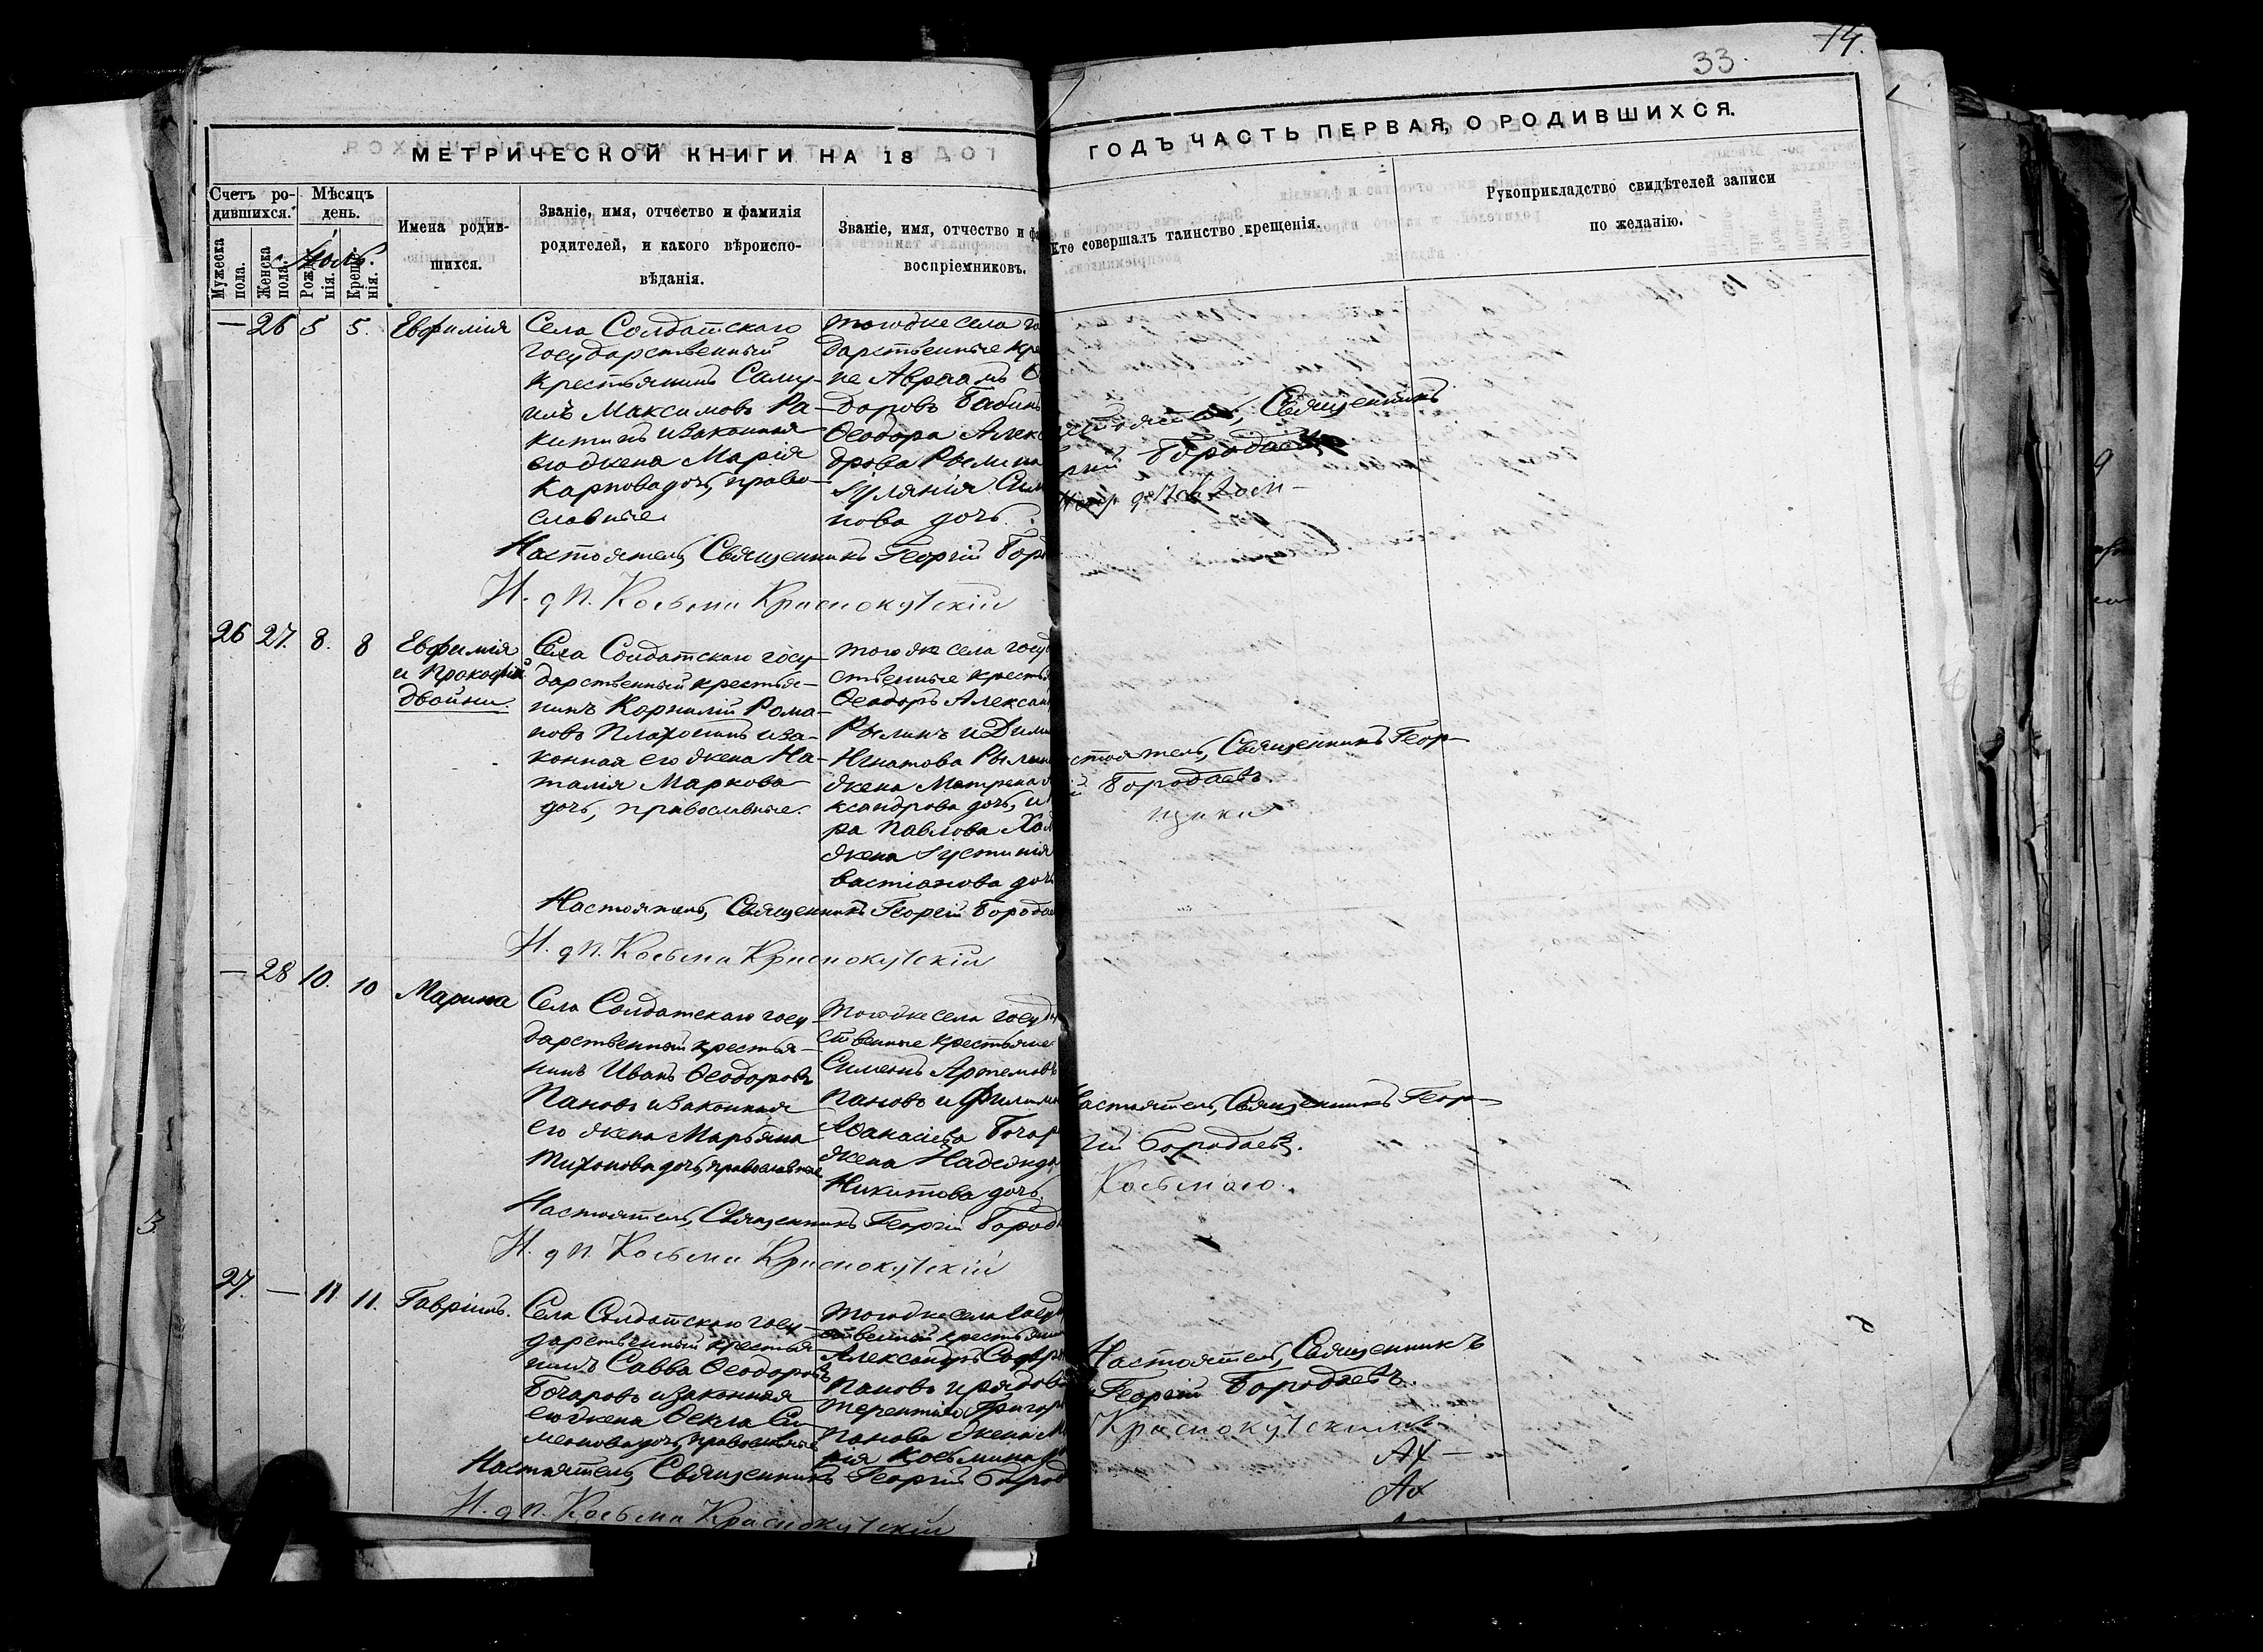 33.
14.
МЕТРИЧЕСКОЙ КНИГИ НА 18
ГОДЪ ЧАСТЬ ПЕРВАЯ, О РОДИВШИХСЯ.
Счетъ ро-
дившихся.
Мужеска
пола.
Женска
пола.
Мѣсяцъ
день.
Рожде-
нія.
Креще-
нія.
Имена родив-
шихся.
Званіе, имя, отчество и фамилія
родителей, и какого вѣроиспо-
вѣданія.
Званіе, имя, отчество и фа
воспріемниковъ.
Кто совершалъ таинство крещенія.
Рукоприкладство свидѣтелей записи
по желанію.
— 26 5 5. Евфимія
Села Солдатскаго
государственный
крестьянинъ Саму-
илъ Максимовъ Ра-
китинъ и законная
его жена Марія
Карпова дочь, право-
славные.
тогоже села го
дарственные кре
не Авраамъ Ѳ
доровъ Бабин
Ѳеодора Алекс
дрова Рылина
Іуланія Сим
нова дочь.
Священникъ
Бородаевъ
Настоятель, Священникъ Георгій Бор
И. д П. Косьма Краснокутскій
26 27. 8. 8
Евфимія
и Прокофій
двойни.
Села Солдатскаго госу-
дарственный крестья-
нинъ Корнилій Рома-
новъ Плахотинъ и за-
конная его жена На-
талія Маркова
дочь, православные.
тогоже села госуд
ственные кресть
Ѳеодоръ Алексан
Рылинъ и Дими
Игнатова Рылин
жена Матрена
ксандрова дочь, и
ра Павлова Ход
жена Іустинія
вастіанова доч
стоятель, Священникъ Геор-
й Бородаевъ.
Настоятель, Священникъ Георгій Борода
И. д П. Косьма Краснокутскій
— 28 10. 10 Марина
Села Солдатскаго госу-
дарственный крестья-
нинъ Иванъ Ѳеодоровъ
Пановъ и законная
его жена Марьяна
Тихонова дочь, православные
тогоже села госуда
ственные крестьяне
Симеонъ Артемовъ
Пановъ и Филим
Аѳанасіева Бочар
жена Надежда
Никитова дочь.
Настоятель, Священникъ Геор-
гій Бородаевъ.
Косьмаю.
Настоятель, Священникъ Георгій Борода
И. д П. Косьма Краснокутскій
27. — 11. 11. Гавріилъ.
Села Солдатскаго госу-
дарственный крестья-
нинъ Савва Ѳеодоровъ
Бочаровъ и законная
его жена Ѳекла Си-
меонова дочь, православные
тогоже села госуд
ственный крестьянин
Александръ Софр
Пановъ и рядов
Терентія Григор
Панова жена М
рія Косьмина д
Настоятель, Священникъ
Георгій Бородаевъ.
Краснокутскимъ
Настоятель, Священникъ Георгій Бород
И. д П. Косьма Краснокутскій